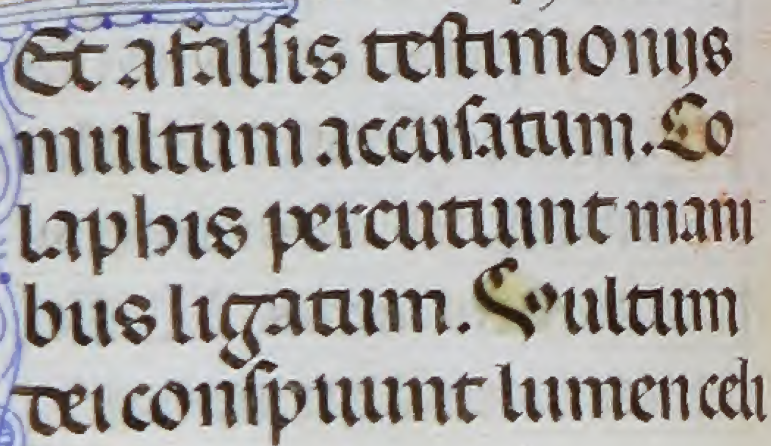 Et a falſis teſtimonijs
multum accuſatum. Co
laphis percutiunt mani
bus ligatum. Vultum
dei conſpuunt lumen celi